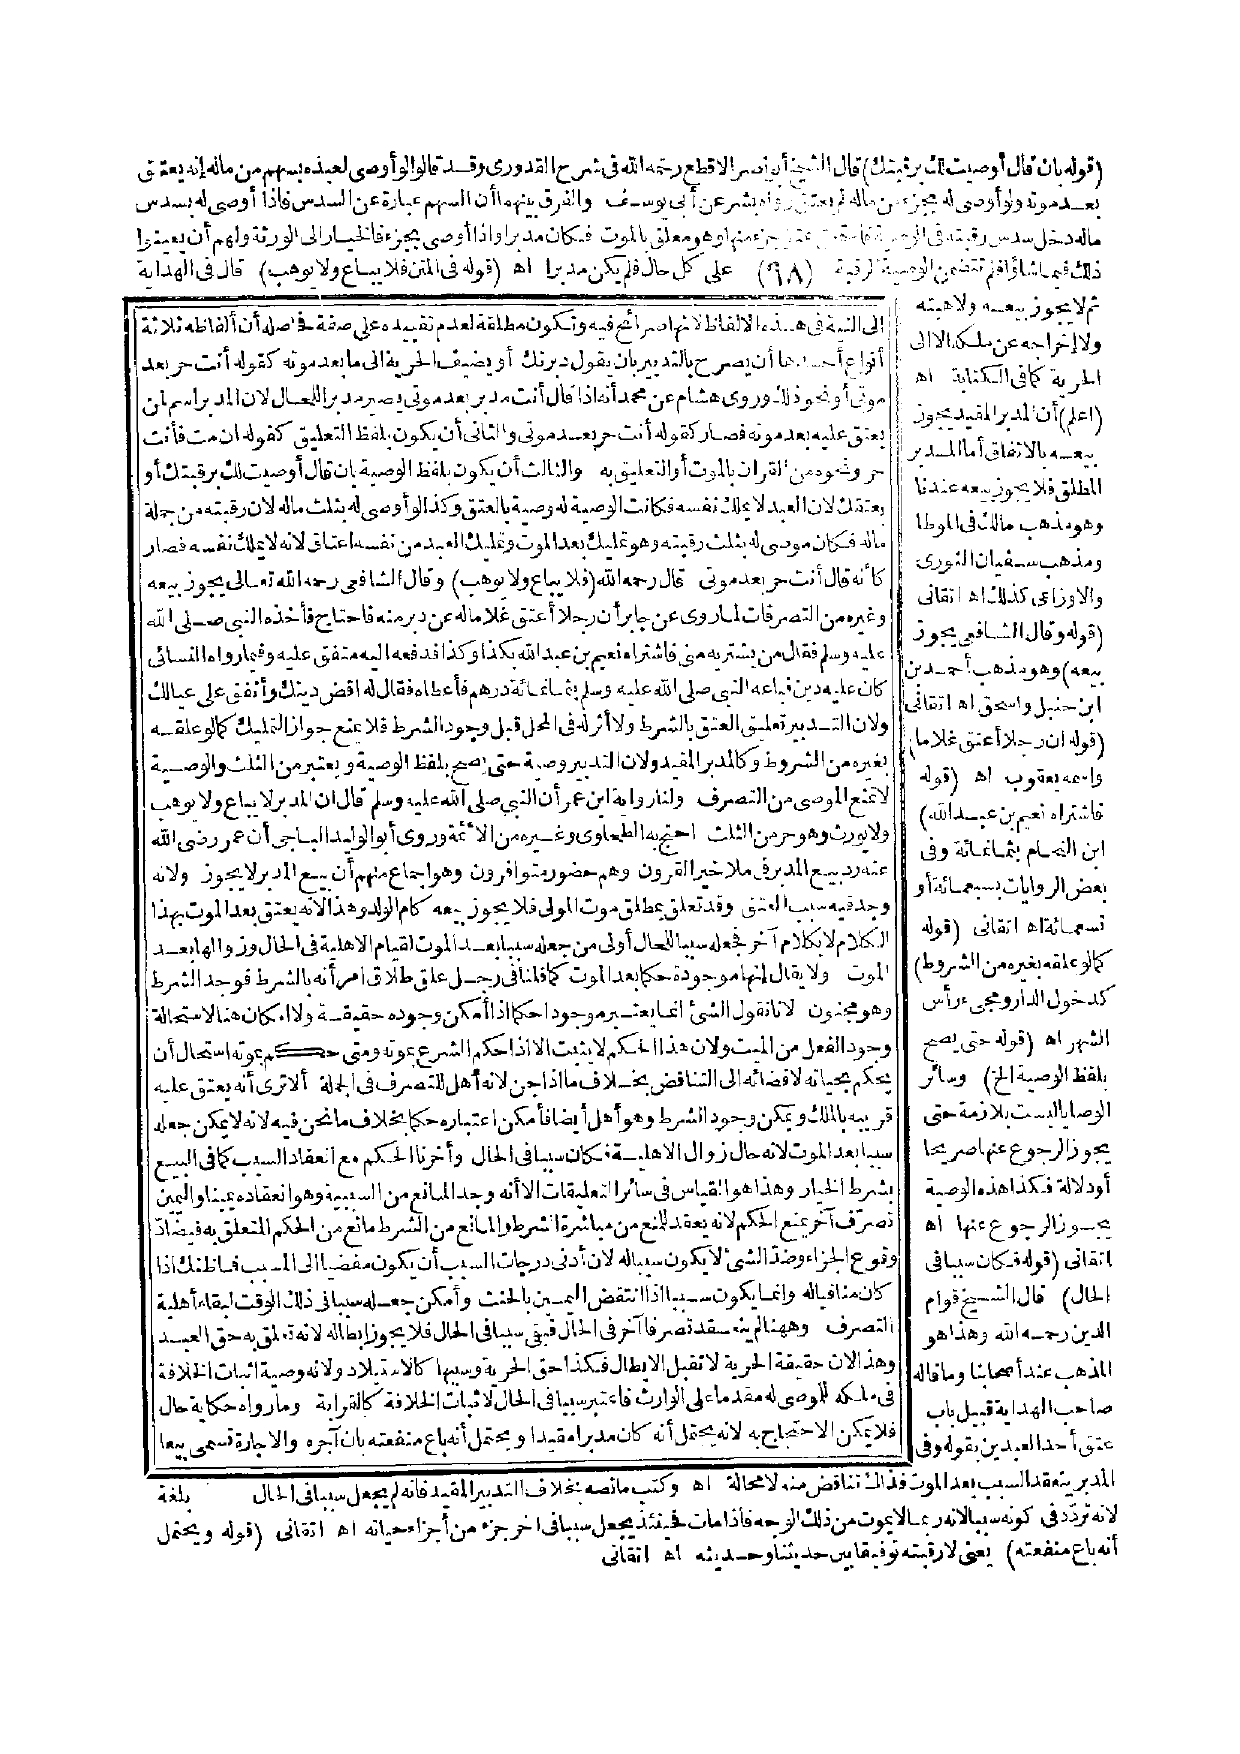 (قوله بان قال أوصيت لك برقبتك) قال الشيخ أبو نصر الاقطع رحمه الله فى شرح القدورى وقد قالوا لو أوصى لعبده بسهم من ماله إنه يعتق
بعد موته ولو أوصى له بجزء من ماله لم يعتق رواه بشر عن أبى يوسف والفرق بينهما أن السهم عبارة عن السدس فاذا أوصى له بسدس
ماله دخل سدس رقبته فى الوصية عتق جزء منها وهو معلق بالموت فكان مدبرا واذا أوصى بجزء فالخيار الى الورثة ولهم أن يعينوا
ذلك فيما شاؤا فلم تتضمن الوصية الرقبة (٩٨) على كل حال فلم يكن مدبرا اه (قوله فى المتن فلا يباع ولا يوهب) قال فى الهداية
ثم لا يجوز بيعه ولا هبته
ولا إخراجه عن ملكه الا الى
الحرية كما فى الكتابة اه
(اعلم) أن المدبر المقيد يجوز
بيعه بالاتفاق أما المدبر
المطلق فلا يجوز بيعه عندنا
وهو مذهب مالك فى الموطا
ومذهب سفيان الثورى
والاوزاعى كذلك اه اتقانى
(قوله وقال الشافعى يجوز
بيعه) وهو مذهب أحمد بن
ابن حنبل واسحق اه اتقانى
(قوله ان رجلا أعتق غلاما)
واسمه يعقوب اه (قوله
فاشتراه نعيم بن عبد الله)
ابن النحام بثمانمائة وفى
بعض الروايات بسبعمائة أو
تسعمائة اه اتقانى (قوله
كما لو علقه بغيره من الشروط)
كدخول الدار ومجىء رأس
الشهر اه (قوله حتى يصح
بلفظ الوصية الخ) وسائر
الوصايا ليست بلازمة حتى
يجوز الرجوع عنها صريحا
أو دلالة فكذا هذه الوصية
يجوز الرجوع عنها اه
اتقانى (قوله فكان سببا فى
الحال) قال الشيخ قوام
الدين رحمه الله وهذا هو
المذهب عند أصحابنا وما قاله
صاحب الهداية قبيل باب
عتق أحد العبدين بقوله وفى
الى النية فى هذه الالفاظ لانها صرائح فيه وتكون مطلقة لعدم تقييده على صفة فحاصله أن ألفاظه ثلاثة
أنواع أحدها أن يصرح بالتدبير بان يقول دبرتك أو يضيف الحرية الى ما بعد موته كقوله أنت حر بعد
موتى أو نحو ذلك وروى هشام عن محمد أنه اذا قال أنت مدبر بعد موتى يصير مدبرا للحال لان المدبر اسم لمن
يعتق عليه بعد موته فصار كقوله أنت حر بعد موتى والثانى أن يكون بلفظ التعليق كقوله ان مت فأنت
حر ونحوه من القران بالموت أو التعليق به والثالث أن يكون بلفظ الوصية بان قال أوصيت لك برقبتك أو
بعتقك لان العبد لا يملك نفسه فكانت الوصية له وصية بالعتق وكذا لو أوصى له بثلث ماله لان رقبته من جملة
ماله فكان موصى له بثلث رقبته وهو تمليك بعد الموت وتمليك العبد من نفسه اعتاق لانه لا يملك نفسه فصار
كأنه قال أنت حر بعد موتى قال رحمه الله (فلا يباع ولا يوهب) وقال الشافعى رحمه الله تعالى يجوز بيعه
وغيره من التصرفات لما روى عن جابر أن رجلا أعتق غلاما له عن دبر منه فاحتاج فأخذه النبى صلى الله
عليه وسلم فقال من يشتريه منى فاشتراه نعيم بن عبد الله بكذا وكذا فدفعه اليه متفق عليه وفيما رواه النسائى
كان عليه دين فباعه النبى صلى الله عليه وسلم بثمانمائة درهم فأعطاه فقال له اقض دينك وأنفق على عيالك
ولان التدبير تعليق العتق بالشرط ولا أثر له فى المحل قبل وجود الشرط فلا يمنع جواز التمليك كما لو علقه
بغيره من الشروط وكالمدبر المقيد ولان التدبير وصية حتى يصح بلفظ الوصية ويعتبر من الثلث والوصية
لا تمنع الموصى من التصرف ولنا رواية ابن عمر أن النبى صلى الله عليه وسلم قال ان المدبر لا يباع ولا يوهب
ولا يورث وهو حر من الثلث احتج به الطحاوى وغيره من الأئمة وروى أبو الوليد الباجى أن عمر رضى الله
عنه رد بيع المدبر فى ملا خير القرون وهم حضور متوافرون وهو اجماع منهم أن بيع المدبر لا يجوز ولانه
وجد فيه سبب العتق وقد تعلق بمطلق موت المولى فلا يجوز بيعه كام الولد وهذا لانه يعتق بعد الموت بهذا
الكلام لا بكلام آخر فجعله سببا للحال أولى من جعله سببا بعد الموت لقيام الاهلية فى الحال وزوالها بعد
الموت ولا يقال إنها موجودة حكما بعد الموت كما قلنا فى رجل علق طلاق امرأته بالشرط فوجد الشرط
وهو مجنون لانا نقول الشئ انما يعتبر موجودا حكما اذا أمكن وجوده حقيقة ولا امكان هنا لاستحالة
وجود الفعل من الميت ولان هذا الحكم لا يثبت الا اذا حكم الشرع بموته ومتى حكم بموته استحال أن
يحكم بحياته لافضائه الى التناقض بخلاف ما اذا جن لانه أهل للتصرف فى الجملة ألا ترى أنه يعتق عليه
قريبه بالملك ويمكن وجود الشرط وهو أهل أيضا فأمكن اعتباره حكما بخلاف ما نحن فيه لانه لا يمكن جعله
سببا بعد الموت لانه حال زوال الاهلية فكان سببا فى الحال وأخرنا الحكم مع انعقاد السبب كما فى البيع
بشرط الخيار وهذا هو القياس فى سائر التعليقات الا أنه وجد المانع من السببية وهو انعقاده يمينا واليمين
تصرف آخر يمنع الحكم لانه يعقد للمنع من مباشرة الشرط والمانع من الشرط مانع من الحكم المتعلق به فيضاد
وقوع الجزاء وضد الشئ لا يكون سببا له لان أدنى درجات السبب أن يكون مفضيا الى المسبب فما ظنك اذا
كان منافيا له وانما يكون سببا اذا انتقض اليمين بالحنث وأمكن جعله سببا فى ذلك الوقت لبقاء أهلية
التصرف وههنا لم ينعقد تصرفا آخر فى الحال فبقى سببا فى الحال فلا يجوز ابطاله لانه تعلق به حق العبد
وهذا لان حقيقة الحرية لا تقبل الابطال فكذا حق الحرية وسببها كالاستيلاد ولانه وصية اثبات الخلافة
فى ملكه للموصى له مقدما على الوارث فاعتبر سببا فى الحال لاثبات الخلافة كالقرابة وما رواه حكاية حال
فلا يمكن الاحتجاج به لانه يحتمل أنه كان مدبرا مقيدا ويحتمل أنه باع منفعته بان آجره والاجارة تسمى بيعا
المدبر ينعقد السبب بعد الموت فذاك تناقض منه لا محالة اه وكتب ما نصه بخلاف التدبير المقيد فانه لم يجعل سببا فى الحال بلغة
لانه تردد فى كونه سببا لانه ربما لا يموت من ذلك الوجه فاذا مات فحينئذ يجعل سببا فى اخر جزء من أجزاء حياته اه اتقانى (قوله ويحتمل
أنه باع منفعته) يعنى لا رقبته توفيقا بين حديثنا وحديثه اه اتقانى